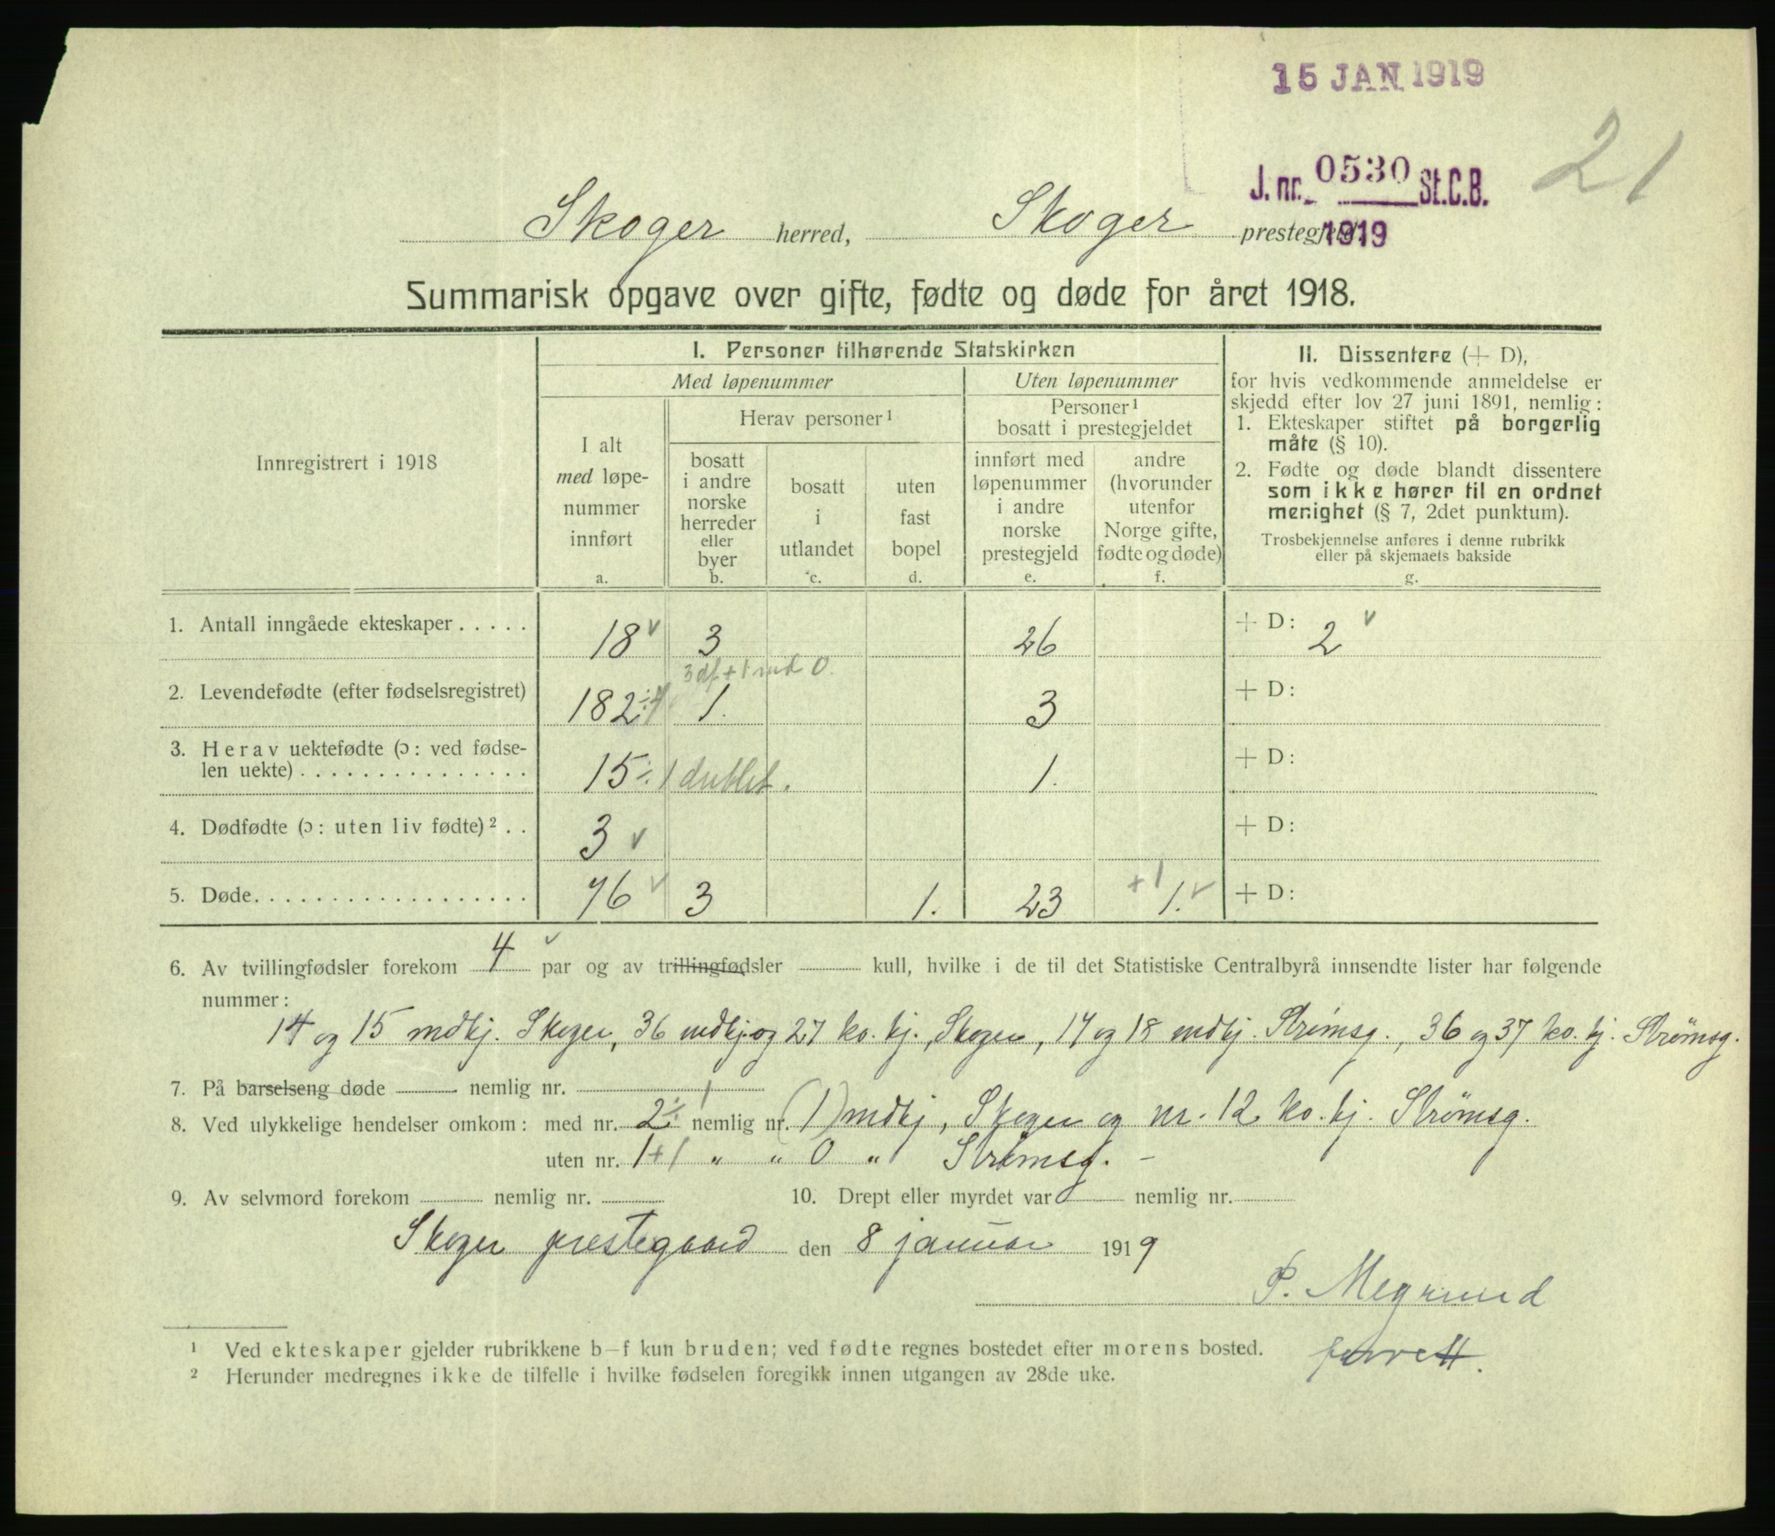 15 JAN 1919
J. nr. 0530 St.C.B.
1919
21
Skoger herred, Skoger prestegjeld.
Summarisk opgave over gifte, fødte og døde for året 1918.
Innregistrert i 1918
I. Personer tilhørende Statskirken
Med løpenummer
Uten løpenummer
I alt
med løpe-
nummer
innført
a.
Herav personer¹
bosatt
i andre
norske
herreder
eller
byer
b.
bosatt
i
utlandet
c.
uten
fast
bopel
d.
Personer¹
bosatt i prestegjeldet
innført med
løpenummer
i andre
norske
prestegjeld
e.
andre
(hvorunder
utenfor
Norge gifte,
fødte og døde)
f.
II. Dissentere (+ D),
for hvis vedkommende anmeldelse er
skjedd efter lov 27 juni 1891, nemlig:
1. Ekteskaper stiftet på borgerlig
måte (§ 10).
2. Fødte og døde blandt dissentere
som ikke hører til en ordnet
menighet (§ 7, 2det punktum).
Trosbekjennelse anføres i denne rubrikk
eller på skjemaets bakside
g.
1. Antall inngåede ekteskaper . . . . . 18 √ 3 26 + D: 2 √
3 df + 1 md 0.
2. Levendefødte (efter fødselsregistret) 182 ÷ 4 1. 3 + D:
3. Herav uektefødte (ɔ: ved fødse-
len uekte) . . . . . . . . . . . . . . . 15 ÷ 1 dublet. 1. + D:
4. Dødfødte (ɔ: uten liv fødte)² . . 3 √ + D:
5. Døde. . . . . . . . . . . . . . . . . . 76 √ 3 1. 23 +1 1. √ + D:
6. Av tvillingfødsler forekom 4 √ par og av trillingfødsler kull, hvilke i de til det Statistiske Centralbyrå innsendte lister har følgende
nummer:
14 og 15 mdkj. Skoger, 36 mdkj. og 27 ko. kj., Skoger, 17 og 18 mdkj. Strømsg., 36 og 37 ko. kj. Strømsg.
7. På barselseng døde nemlig nr.
8. Ved ulykkelige hendelser omkom: med nr. 2 ÷ 1 nemlig nr. (1) mdkj, Skoger og nr. 12 ko. kj. Strømsg.
uten nr. 1+1 " " 0 " Strømsg. –
9. Av selvmord forekom nemlig nr. 10. Drept eller myrdet var nemlig nr.
Skoger prestegaard den 8 januar 1919
P. Megrund
¹ Ved ekteskaper gjelder rubrikkene b–f kun bruden; ved fødte regnes bostedet efter morens bosted.
² Herunder medregnes ikke de tilfelle i hvilke fødselen foregikk innen utgangen av 28de uke.